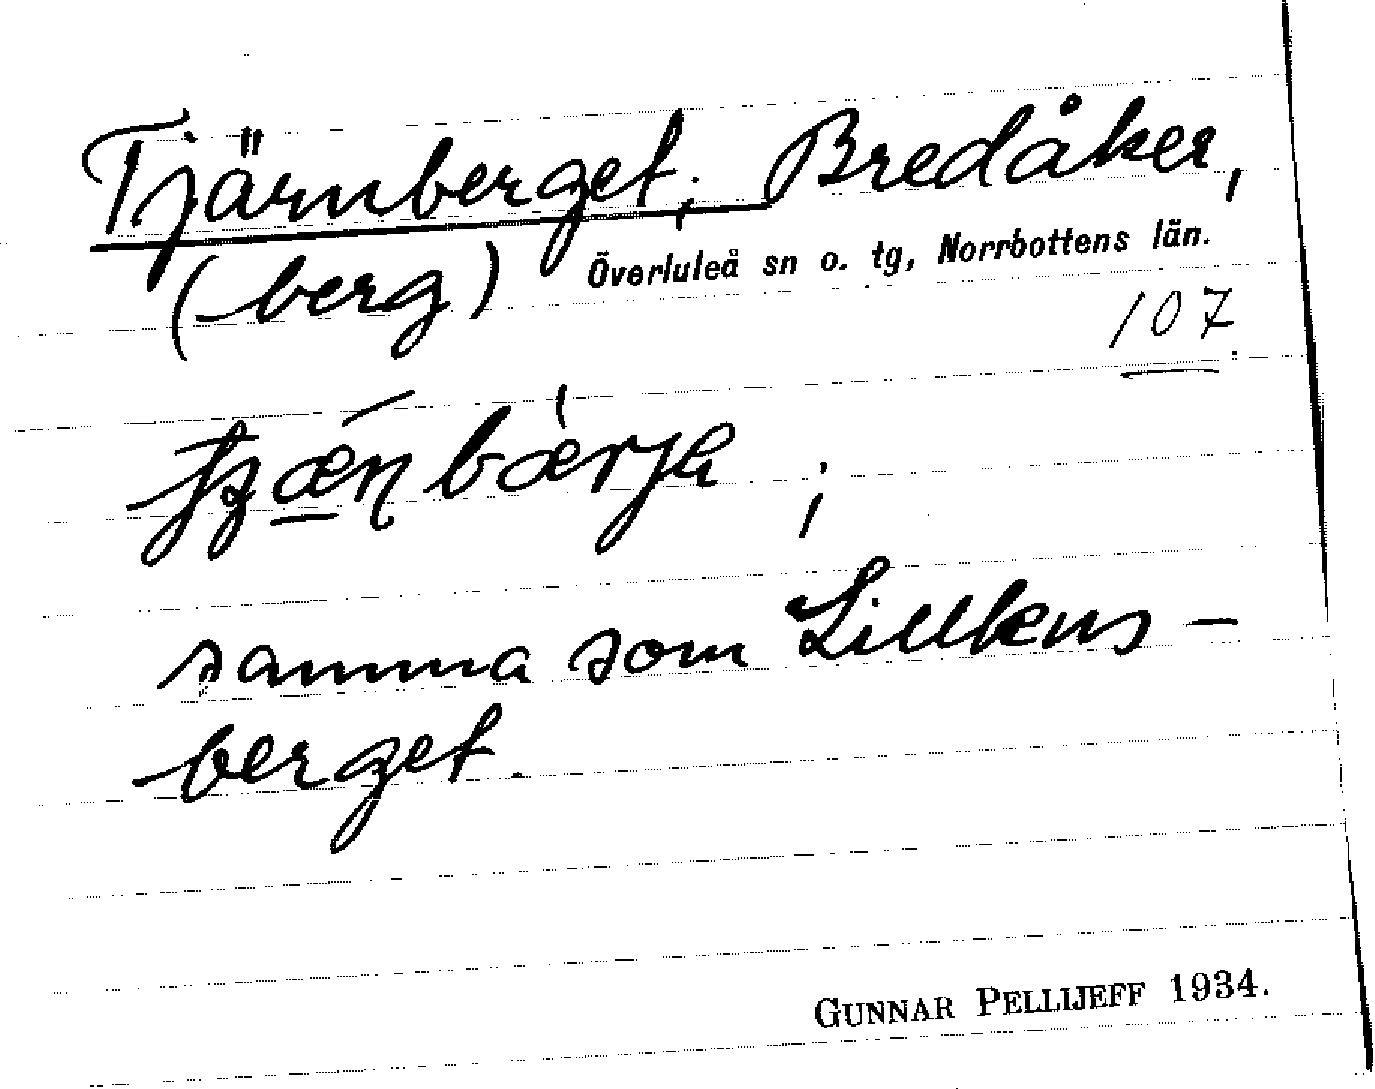 Tjärnberget; Bredåker,
(berg) Överluleå sn o. tg, Norrbottens län.
107.
;
samma som Lillkens-
berget.
GUNNAR PELLIJEFF 1934.